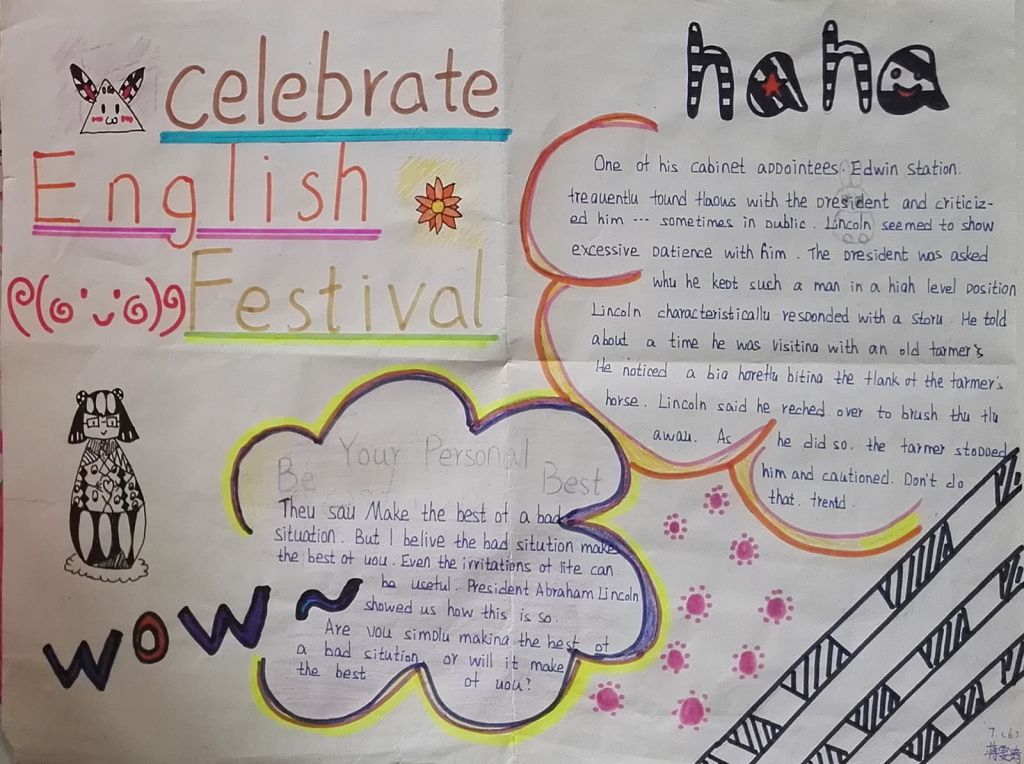 celebrate
English
Festival
haha
One of his cabinet appointees. Edwin Station.
frequently found flaous with the president and criticiz-
ed him --- sometimes in public. Lincoln seemed to show
excessive patience with him. The president was asked
why he kept such a man in a high level position
Lincoln characteristically responded with a story. He told
about a time he was visiting with an old farmer's
He noticed a big horefly biting the flank of the farmer's
horse. Lincoln said he reched over to brush thu fly
away. As he did so. the farmer stopped
him and cautioned. Don't do
that. frentd.
Be Your Personal Best
They say Make the best of a bad
situation. But I belive the bad sitution make
the best of you. Even the irritations of life can
be useful. President Abraham Lincoln
showed us how this is so.
Are you simply making the best of
a bad sitution or will it make
the best of you?
wow~
7.(6)